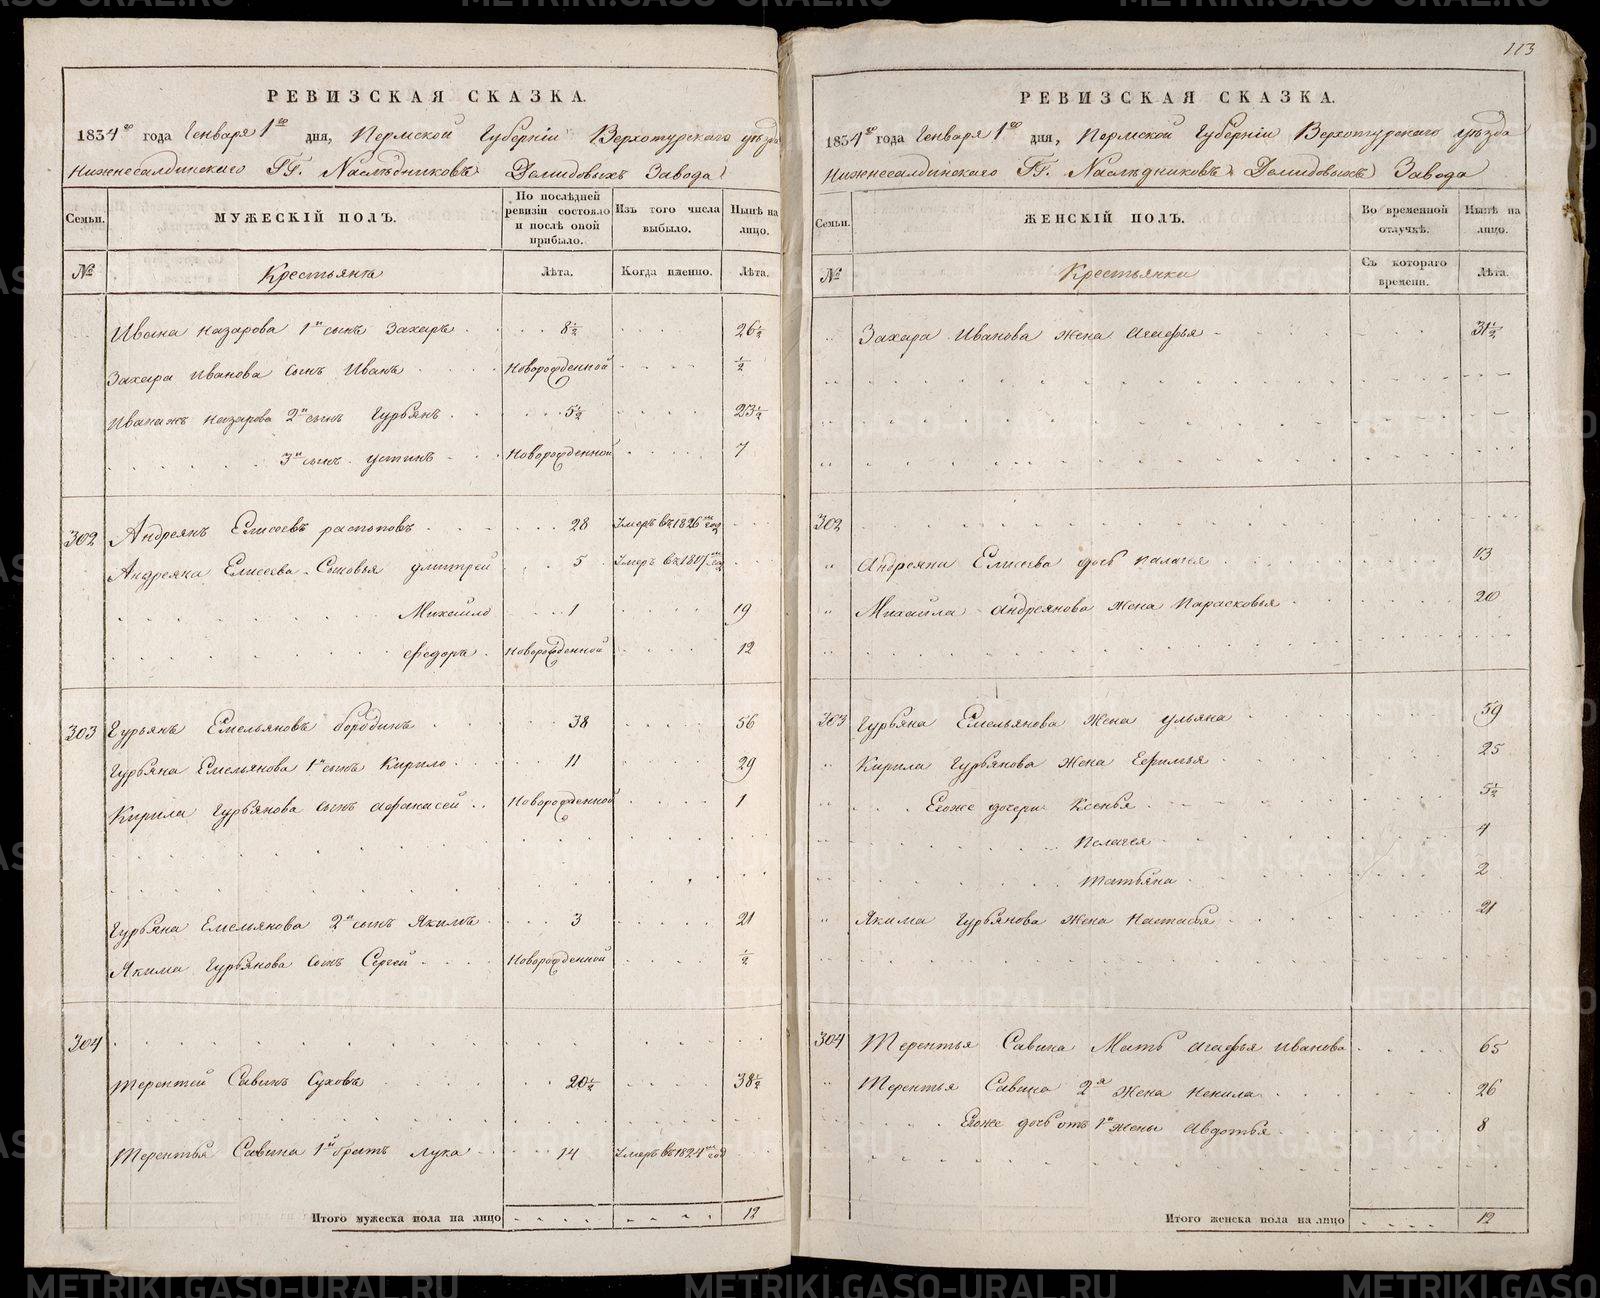 РЕВИЗСКАЯ СКАЗКА.
1834го года Генваря 1го дня, Пермской Губернiи Верхотурскаго уезда
Нижнесалдинскаго ГГ. Наследниковъ Демидовыхъ Завода
Семьи. МУЖЕСКIЙ ПОЛЪ. По послѣдней ревизiи состояло и послѣ оной прибыло. Изъ того числа выбыло. Нынѣ на лицо.
№ Крестьяня Лѣта. Когда именно. Лѣта.
Ивана Назарова 1й сынъ Захаръ 8½ 26½
Захара Иванова сынъ Иванъ Новорожденной ½
Иванажъ Назарова 2й сынъ Гурьянъ 5½ 23½
3й сынъ Устинъ Новорожденной 7
302 Андреянъ Елисеевъ 28 Умеръ въ 1826м год
Андреяна Елисеева Сыновья Дмитрей 5 Умеръ въ
Михайло 1 19
Федоръ Новорожденной 12
303 Гурьянъ Емельяновъ Бородинъ 38 56
Гурьяна Емельянова 1й сынъ Кирило 11 29
Кирила Гурьянова сынъ Афанасей Новорожденной 1
Гурьяна Емельянова 2й сынъ Якимъ 3 21
Якима Гурьянова сынъ Сергей Новорожденной ½
304
Терентей Савинъ Суховъ 20½ 38½
Терентья Савина 1й братъ Лука 14 Умеръ въ 1824м год
Итого мужеска пола на лицо 12
113
РЕВИЗСКАЯ СКАЗКА.
1834го года Генваря 1го дня, Пермской Губернiи Верхотурскаго уезда
Нижнесалдинскаго ГГ. Наследниковъ Демидовыхъ Завода
Семьи. ЖЕНСКIЙ ПОЛЪ. Во временной отлучкѣ. Нынѣ на лицо.
№ Крестьянки Съ котораго времени. Лѣта.
Захара Иванова жена Агафья 31½
302
Андреяна Елисеева дочь Палагея 13
Михайла Андреянова жена Парасковья 20
303 Гурьяна Емельянова жена Ульяна 59
Кирила Гурьянова жена Ефимья 25
Егоже дочери Ксенья 5½
Пелагея 4
Татьяна 2
Якима Гурьянова жена Настасья 21
304 Терентья Савина Мать Агафья Иванова 65
Терентья Савина 2я жена Ненила 26
Егоже дочь отъ 1й жены Авдотья 8
Итого женска пола на лицо 12
METRIKI.GASO-URAL.RU